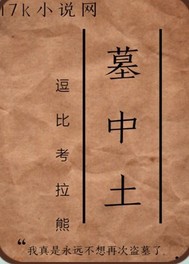 17k小说网
墓中土
逗比考拉熊
“我真是永远不想再次盗墓了....